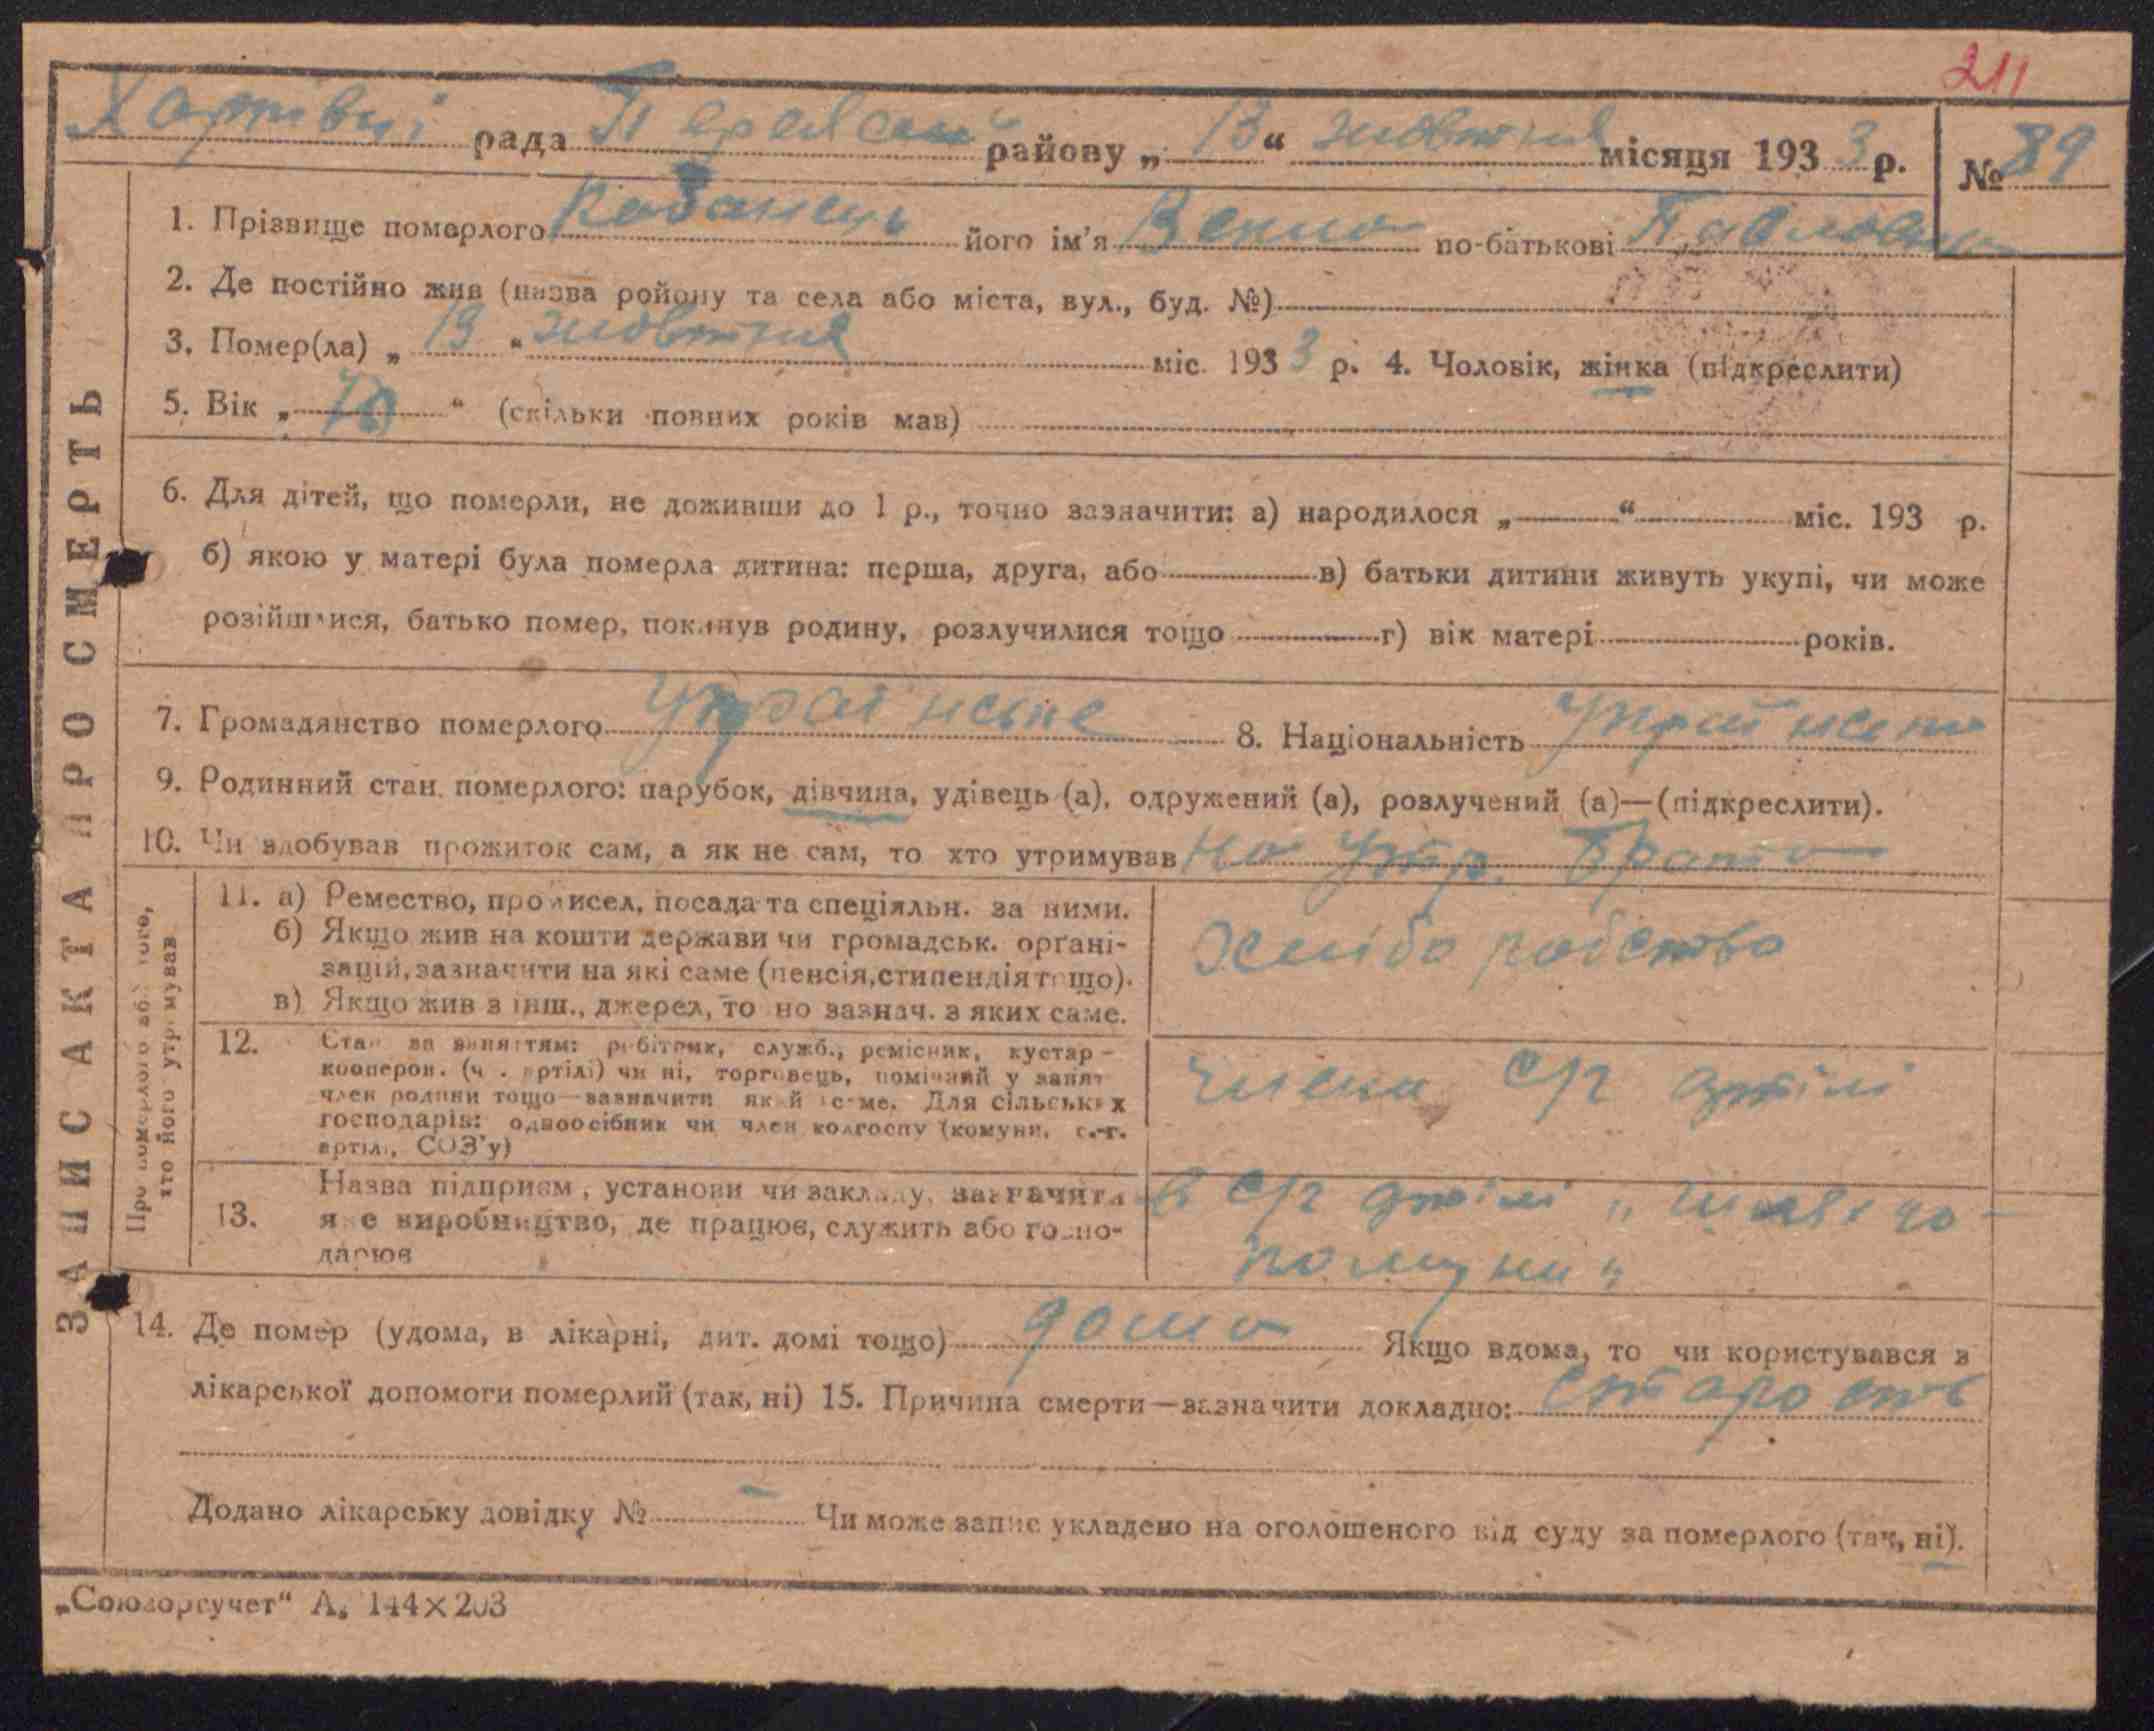 211
рада районну „ 13 “ жовтня місяця 193 3 р. № 89
1. Прізвище померлого його ім'я по-батькові Павловна
2. Де постійно жив (назва ройону та села або міста, вул., буд. №)
3. Помер(ла) „ 13 “ жовтня міс. 193 3 р. 4. Чоловік, жінка (підкреслити)
5. Вік „ 70 “ (скільки повних років мав)
6. Для дітей, що померли, не доживши до 1 р., точно зазначити: а) народилося „ “ міс. 193 р.
б) якою у матері була померла дитина: перша, друга, або в) батьки дитини живуть укупі, чи може
розійшлися, батько помер, покинув родину, розлучилися тощо г) вік матері років.
7. Громадянство померлого Українське 8. Національність
9. Родинний стан померлого: парубок, дівчина, удівець (а), одружений (а), розлучений (а)—(підкреслити).
10. Чи здобував прожиток сам, а як не сам, то хто утримував На утр. Брата
11. а) Ремество, промисел, посада та спеціяльн. за ними.
б) Якщо жив на кошти держави чи громадськ. орґані-
зацій, зазначити на які саме (пенсія, стипендія тощо).
в) Якщо жив з інш., джерел, то но зазнач. з яких саме.
Хлібо робство
12. Стан за заняттям: робітник, служб., ремісник, кустар –
кооперов. (ч. артілі) чи ні, торговець, помічний у занят
член родини тощо—зазначити який саме. Для сільських
господарів: одноосібник чи член колгоспу (комуни, с.-г.
артілі, СОЗ'у)
члена С/г артілі
13. Назва підприєм., установи чи закладу, зазначити
яке виробництво, де працює, служить або госпо-
дарює
В С/г артілі „ Шлях до
комуни “
Про померлого або того,
хто його утримував
14. Де помер (удома, в лікарні, дит. домі тощо) дома Якщо вдома, то чи користувався з
лікарської допомоги померлий (так, ні) 15. Причина смерти—зазначити докладно: старость
Додано лікарську довідку № – Чи може запис укладено на оголошеного від суду за померлого (так, ні).
ЗАПИС АКТА ПРО СМЕРТЬ
„Союзоргучет“ А. 144×203